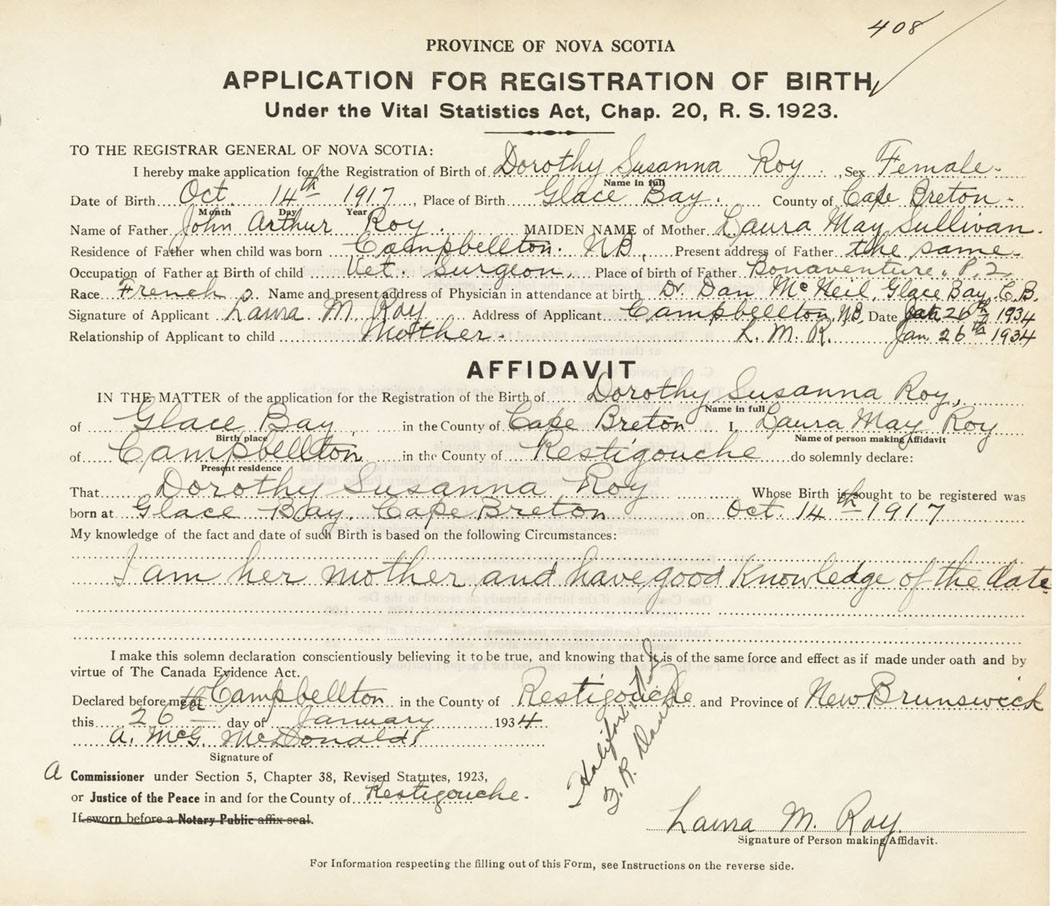 408
PROVINCE OF NOVA SCOTIA
APPLICATION FOR REGISTRATION OF BIRTH
Under the Vital Statistics Act, Chap. 20, R. S. 1923.
TO THE REGISTRAR GENERAL OF NOVA SCOTIA:
I hereby make application for the Registration of Birth of Dorothy Susanna Roy Sex Female
Name in full
Date of Birth Oct. 14th 1917 Place of Birth Glace Bay. County of Cape Breton.
Month Day Year
Name of Father John Arthur Roy MAIDEN NAME of Mother Laura May Sullivan.
Residence of Father when child was born Campbellton. N.B. Present address of Father the same.
Occupation of Father at Birth of child Vet. Surgeon. Place of birth of Father Bonaventure, P.Q.
Race French Name and present address of Physician in attendance at birth Dr Dan McNeil, Glace Bay, C.B.
Signature of Applicant Laura M. Roy Address of Applicant Campbellton, N.B. Date Jan 26th 1934
Relationship of Applicant to child Mother. L. M. R. Jan 26th 1934
AFFIDAVIT
IN THE MATTER of the application for the Registration of the Birth of Dorothy Susanna Roy,
Name in full
of Glace Bay in the County of Cape Breton I, Laura May Roy
Birth place Name of person making Affidavit
of Campbellton in the County of Restigouche do solemnly declare:
Present residence
That Dorothy Susanna Roy Whose Birth is sought to be registered was
born at Glace Bay, Cape Breton on Oct. 14th 1917
My knowledge of the fact and date of such Birth is based on the following Circumstances:
I am her mother and have good knowledge of the date
I make this solemn declaration conscientiously believing it to be true, and knowing that it is of the same force and effect as if made under oath and by
virtue of The Canada Evidence Act.
Declared before me at Campbellton in the County of Restigouche and Province of New Brunswick
this 26th day of January 1934
A. McG. McDonald
Signature of
A Commissioner under Section 5, Chapter 38, Revised Statutes, 1923,
or Justice of the Peace in and for the County of Restigouche.
If sworn before a Notary Public affix seal.
Halifax N.S.
Laura M. Roy.
Signature of Person making Affidavit.
For Information respecting the filling out of this Form, see Instructions on the reverse side.